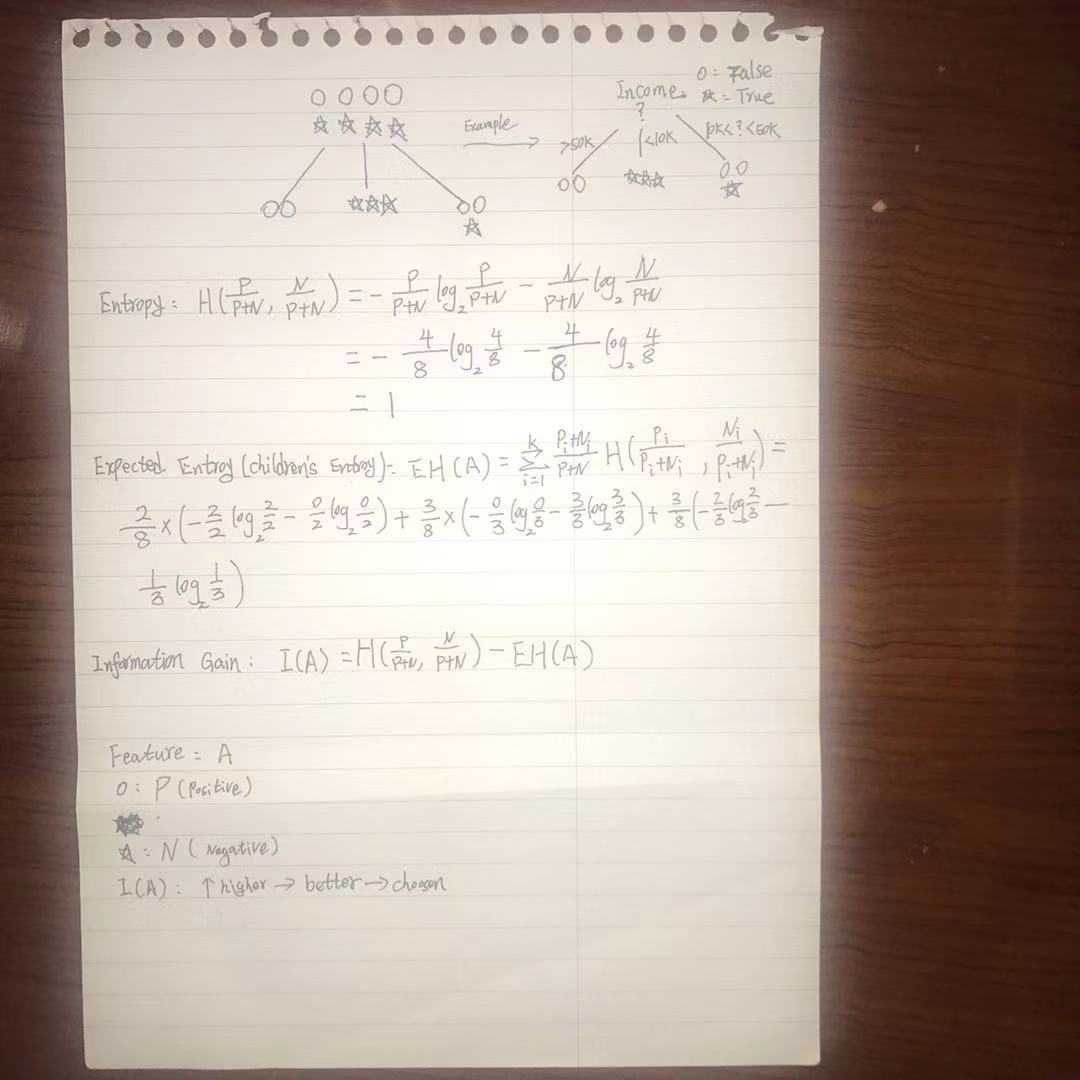 O = False
Income. ☆ = True
?
Example
>50K
<10K
10K<?<50K
Entropy: H(P/(P+N), N/(P+N)) = - P/(P+N) log₂ P/(P+N) - N/(P+N) log₂ N/(P+N)
= - 4/8 log₂ 4/8 - 4/8 log₂ 4/8
= 1
Expected Entroy (children's Entroy): EH(A) = Σ_{i=1}^{k} (Pi+Ni)/(P+N) H(Pi/(Pi+Ni), Ni/(Pi+Ni)) =
2/8 × (- 2/2 log₂ 2/2 - 0/2 log₂ 0/2) + 3/8 × (- 0/3 log₂ 0/3 - 3/3 log₂ 3/3) + 3/8 (- 2/3 log₂ 2/3 -
1/3 log₂ 1/3)
Information Gain: I(A) = H(P/(P+N), N/(P+N)) - EH(A)
Feature = A
O: P (Positive)
☆: N (Negative)
I(A): ↑ higher → better → choosen